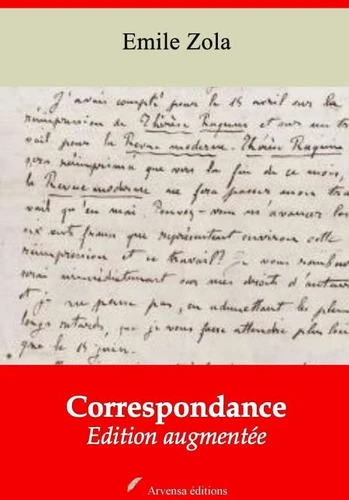 Emile Zola
J'avais compté pour le 15 avril sur la
réimpression de Thérèse Raquin et sur un tra
vail pour la Revue moderne. Thérèse Raquin
sera réimprimé que vers la fin de ce mois,
la Revue moderne ne fera passer mon tra
vail qu'en mai. Pouvez-vous m'avancer les
six cents francs que représentent environ cette
réimpression et ce travail? Je vous rembour
serai immédiatement sur mes droits d'auteur
et je ne pense pas, en admettant les plus
longs retards, que je vous fasse attendre plus loin
que le 15 juin.
Correspondance
Edition augmentée
Arvensa éditions